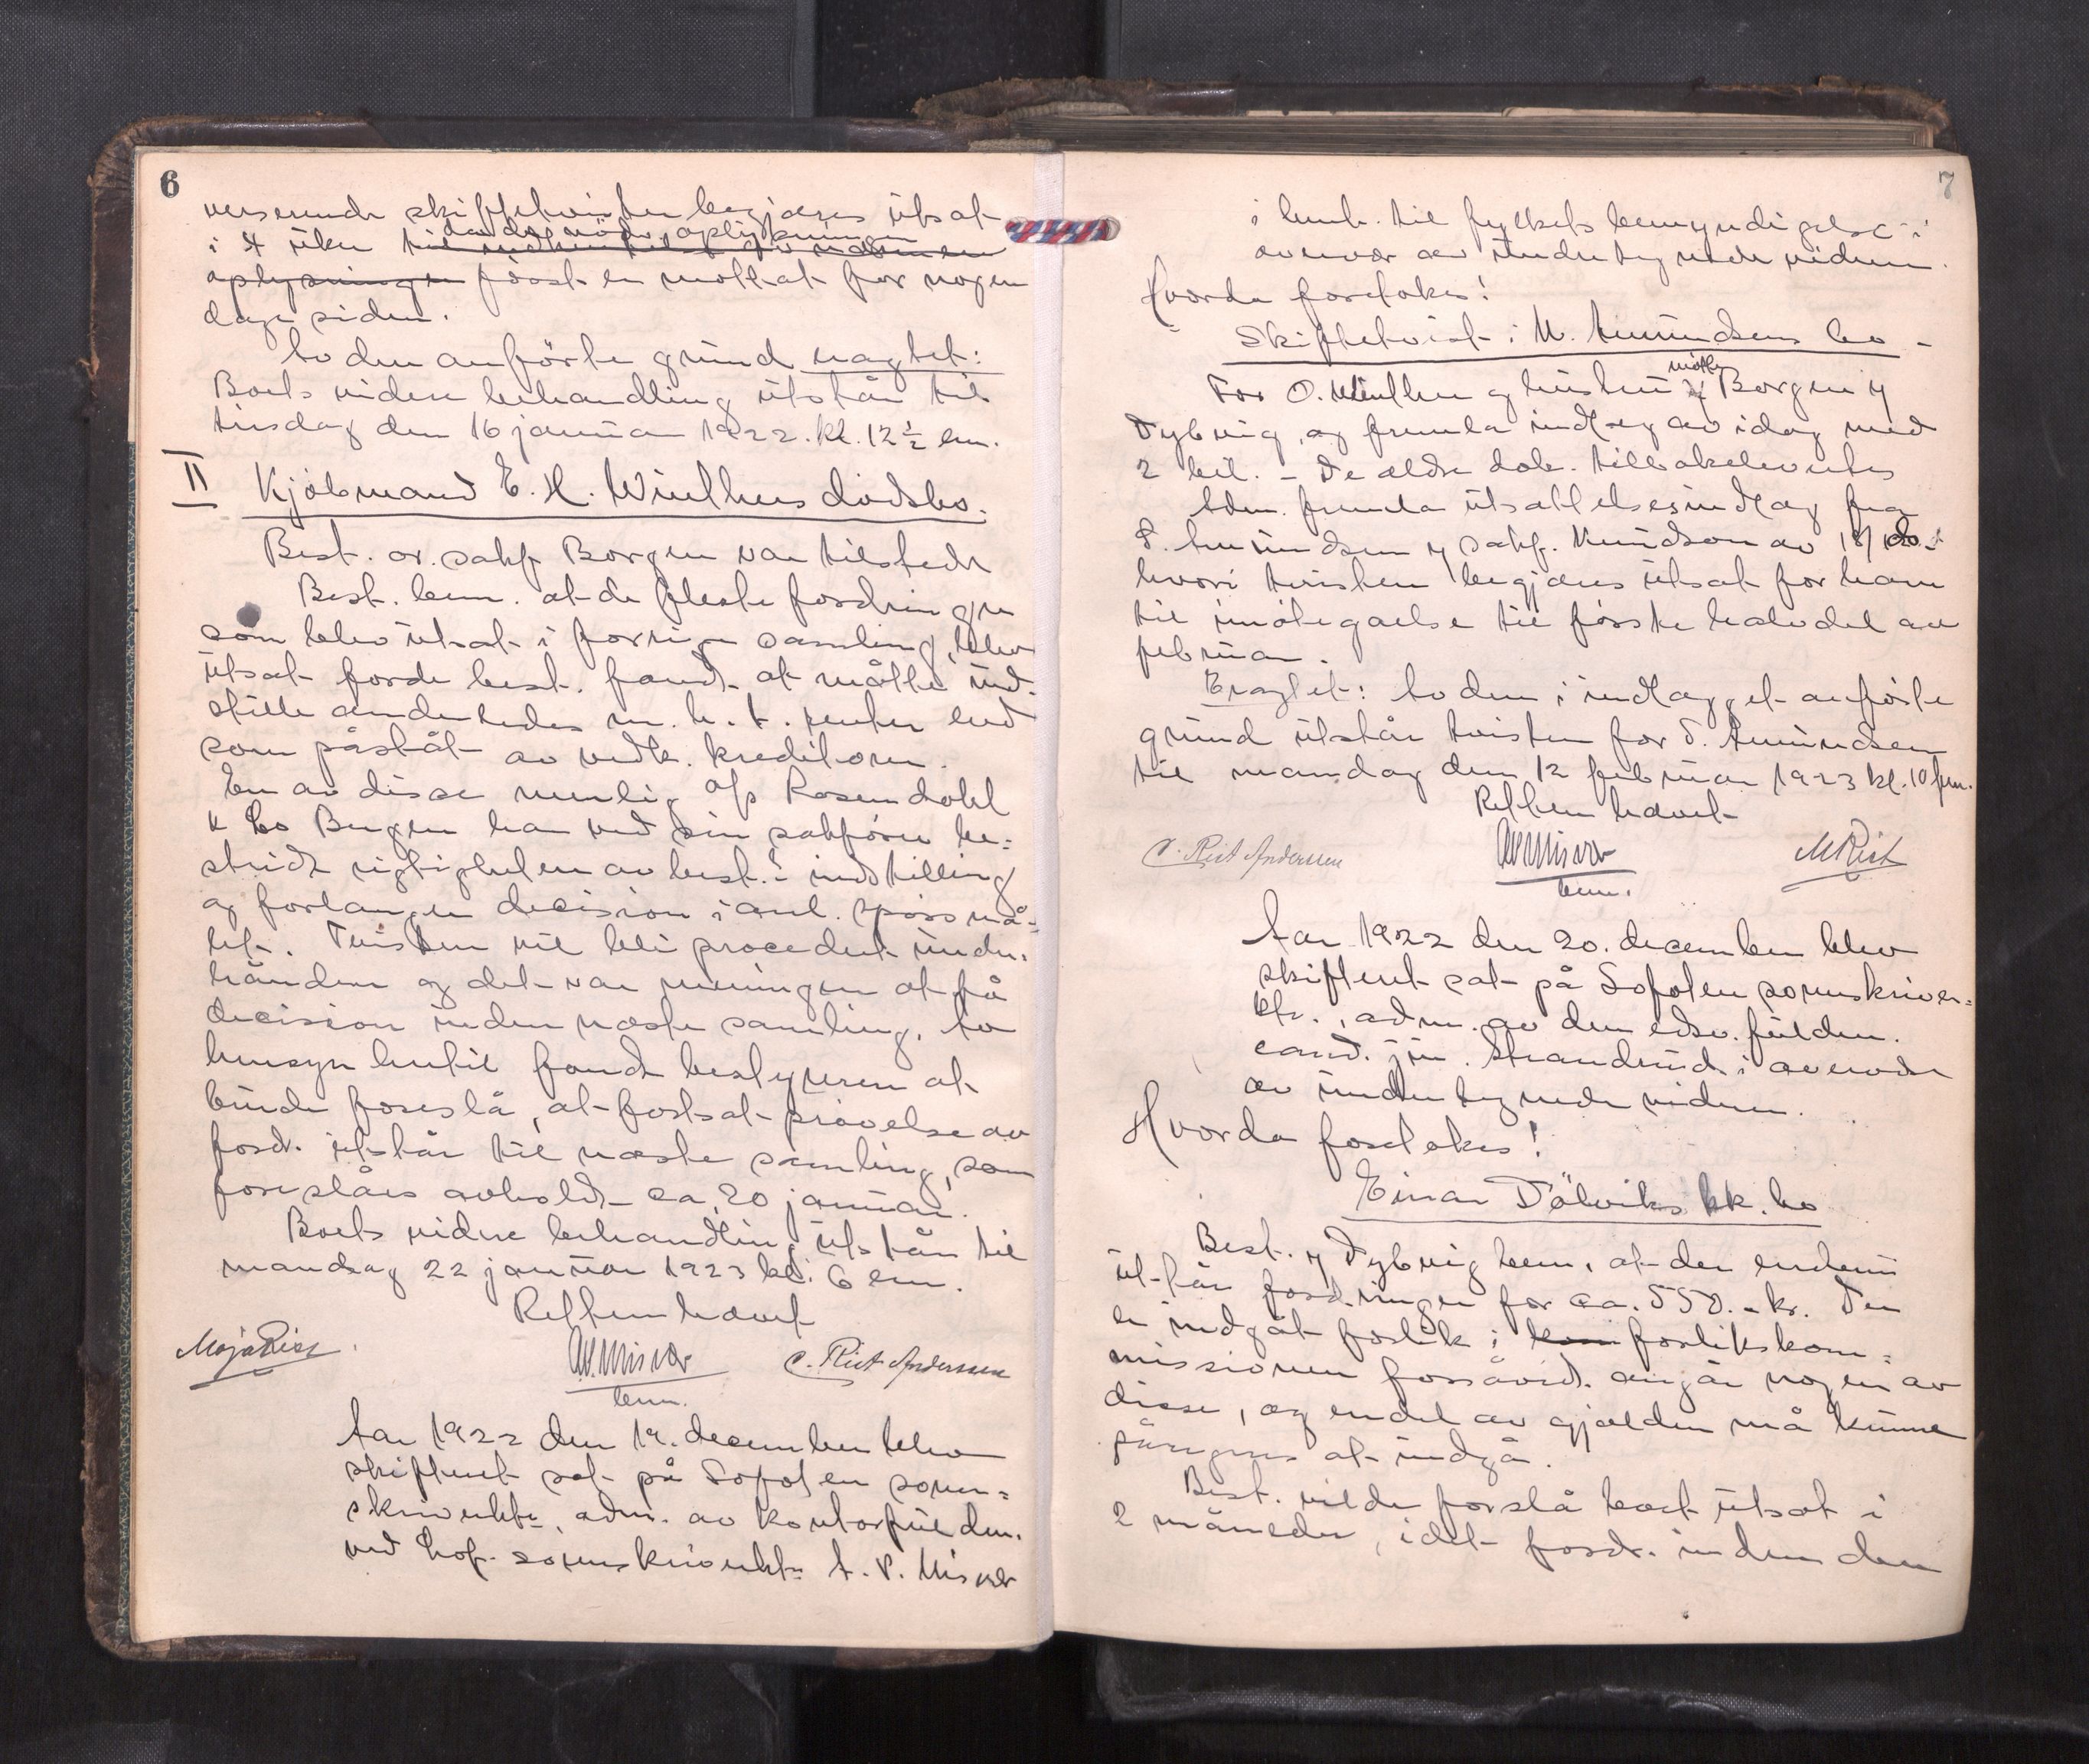 6
verserende skiftetvister begjæres utsat
da de nødv. oplysninger
i 4 uker til
oplysninger först er mottat for nogen
dage siden.
Av den anförte grund eragtet:
Boets videre behandling utstår til
tirsdag den 16 januar 1922. kl. 12½ em.
II Kjöbmand E. H. Winthers dödsbo.
Best. or. sakf Borgen var tilstede
Best. bem. at de fleste fordringer
som blev utsat i forrige samling, blev
utsat fordi best. fandt at måtte ind-
stille anderledes m. h. t. renter end
som påståt av vedk. kreditorer.
En av disse nemlig A/s Rosendahl
& Co Bergen har ved sin sakförer be=
stridt rigtigheten av best.s indstilling
og forlanger decision i anl. spörsmå-
let. Tvisten vil bli procedert under-
hånden og det var meningen at få
decision inden næste samling. Av
hensyn hertil fandt bestyreren at
burde foreslå, at fortsat prövelse av
ford. utstår til næste samling, som
foreslåes avholdt ca 20 januar.
Boets videre behandling utstår til
mandag 22 januar 1923 kl. 6 em.
Retten hævet
Maja Rist. A.P. Misvær C. Rist Anderssen
bem.
Aar 1922 den 19. december blev
skifteret sat på Lofoten soren=
skriverkt., adm. av kontorfuldm.
ved Lof. sorenskriverkt. A. P. Misvær
7
i henh. til fylkets bemyndigelse i
overvær av undertegnede vidner.
Hvorda foretokes!
Skiftetvist i M. Amundsens bo -
mötte
For O. Winther og hustru Borgen v
Dybvig, og fremla indlæg av idag med
2 bil. - De ældre dok. tilbakelevertes
Adm. fremla utsættelsesindlæg fra
S. Amundsen v sakf. Knudson av 18/ ds.
hvori tvisten begjæres utsat for ham
til imötegaaelse til förste halvdel av
februar.
Eragtet: Av den i indlægget anförte
grund utstår tvisten for S. Amundsen
til mandag den 12 februar 1923 kl. 10 fm.
Retten hævet
C. Rist Anderssen A.P. Misvær M Rist
bem.
Aar 1922 den 20. december blev
skifteret sat på Lofoten sorenskriver=
kt., adm. av den edsv. fuldm.
cand. jur. Strandrud i overvær
av undertegnede vidner.
Hvorda foretokes!
Einar Tölviks kk. bo
Best. v Dybvig bem. at der endnu
utstår fordringer for ca. 550.- kr. Der
er indgåt forlik i kom forlikskom=
missionen forsåvidt angår nogen av
disse, og endel av gjælden må kunne
påregnes at indgå.
Best. vilde forslå boet utsat i
2 måneder, idet fordr. inden den